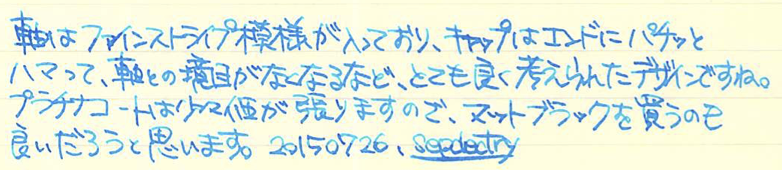 軸はファインストライプ模様が入っており、キャップはエンドにパチッと
ハマって、軸との境目がなくなるなど、とても良く考えられたデザインですね。
プラチナコートは少々値が張りますので、マットブラックを買うのも
良いだろうと思います。20150726、